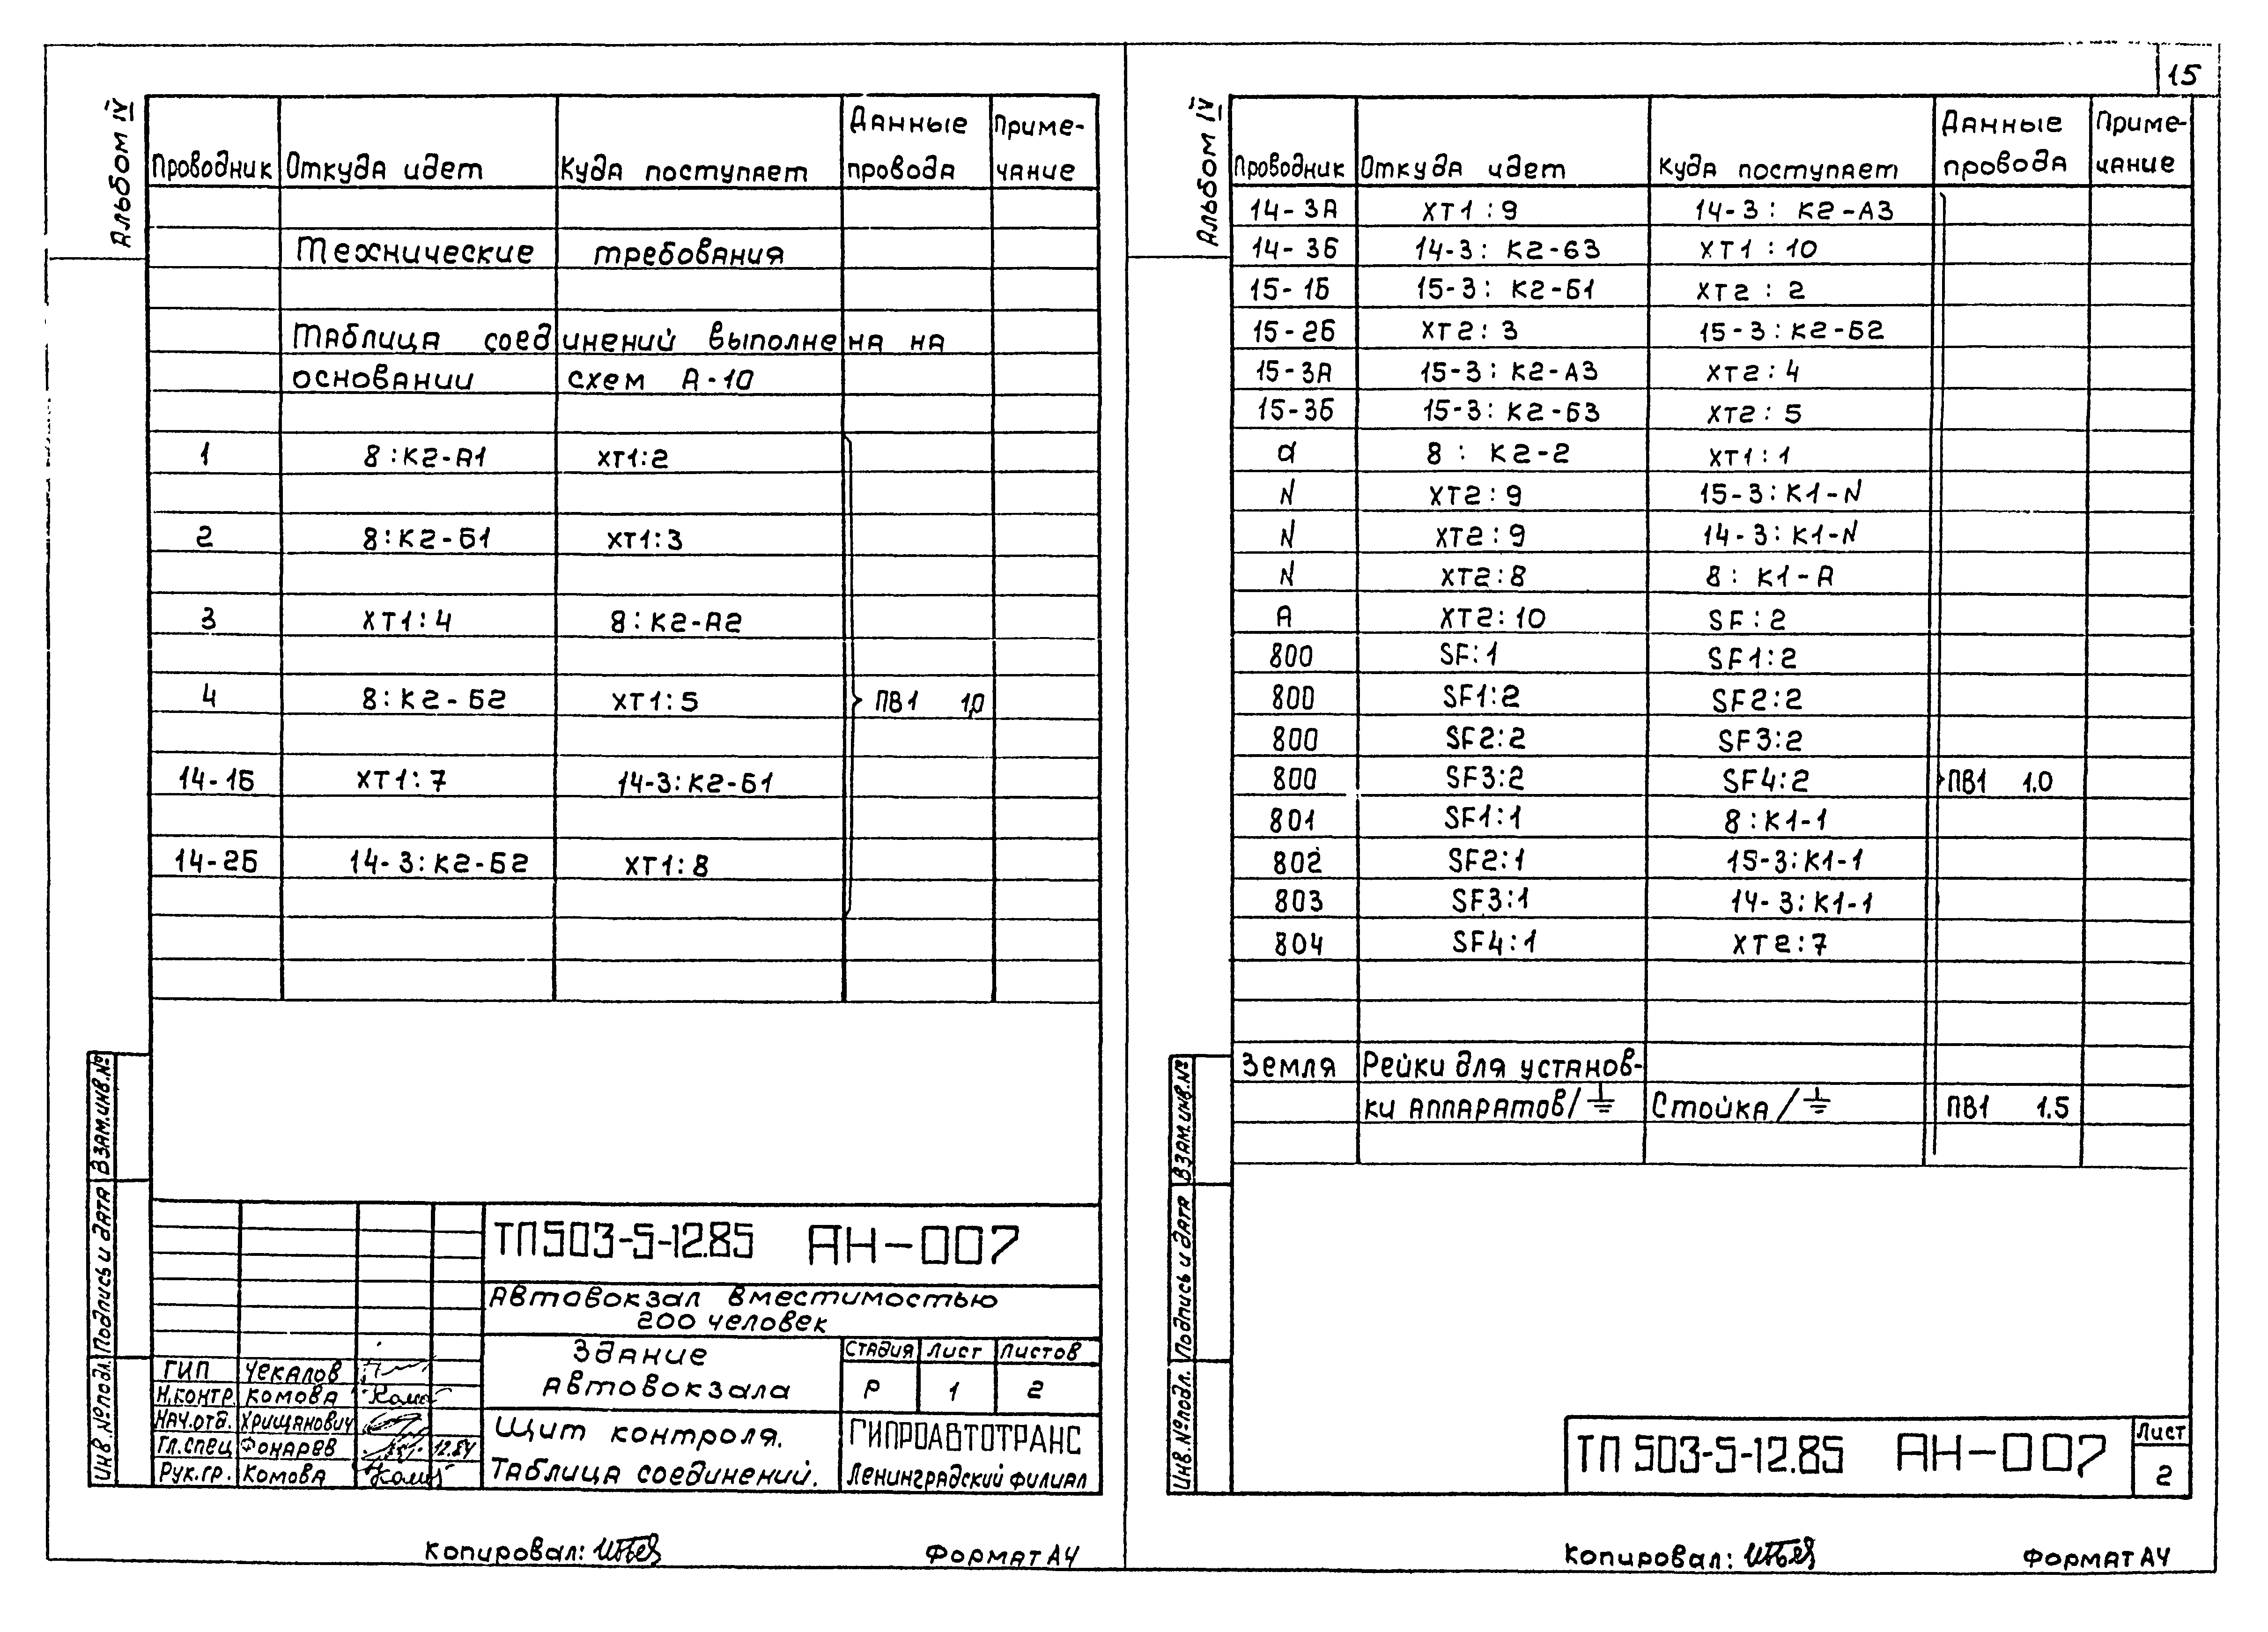 Альбом IV
Проводник Откуда идет Куда поступает Данные провода Приме-чание
Технические требования
Таблица соединений выполнена на
основании схем А-10
1 8:К2-А1 ХТ1:2
2 8:К2-Б1 ХТ1:3
3 ХТ1:4 8:К2-А2
4 8:К2-Б2 ХТ1:5 ПВ1 1,0
14-1Б ХТ1:7 14-3:К2-Б1
14-2Б 14-3:К2-Б2 ХТ1:8
Взам.инв.№
Подпись и дата
Инв.№подл.
ТП503-5-12.85 АН-007
Автовокзал вместимостью
200 человек
Здание
Автовокзала
Стадия Лист Листов
Р 1 2
Щит контроля.
Таблица соединений.
ГИПРОАВТОТРАНС
Ленинградский филиал
ГИП Чекалов
Н.контр. Комова
Нач.отд. Хрищанович
Гл.спец Фонарев 12.84
Рук.гр. Комова
Копировал:
Формат А4
15
Альбом IV
Проводник Откуда идет Куда поступает Данные провода Приме-чание
14-3А ХТ1:9 14-3: К2-А3
14-3Б 14-3: К2-Б3 ХТ1:10
15-1Б 15-3: К2-Б1 ХТ2:2
15-2Б ХТ2:3 15-3:К2-Б2
15-3А 15-3: К2-А3 ХТ2:4
15-3Б 15-3: К2-Б3 ХТ2:5
α 8: К2-2 ХТ1:1
N ХТ2:9 15-3:К1-N
N ХТ2:9 14-3:К1-N
N ХТ2:8 8: К1-А
А ХТ2:10 SF:2
800 SF:1 SF1:2
800 SF1:2 SF2:2
800 SF2:2 SF3:2
800 SF3:2 SF4:2 ПВ1 1.0
801 SF1:1 8:К1-1
802 SF2:1 15-3:К1-1
803 SF3:1 14-3:К1-1
804 SF4:1 ХТ2:7
Земля Рейки для установ-
ки аппаратов/⏚ Стойка/⏚ ПВ1 1.5
Взам.инв.№
Подпись и дата
Инв.№подл.
ТП 503-5-12.85 АН-007
Лист
2
Копировал:
Формат А4